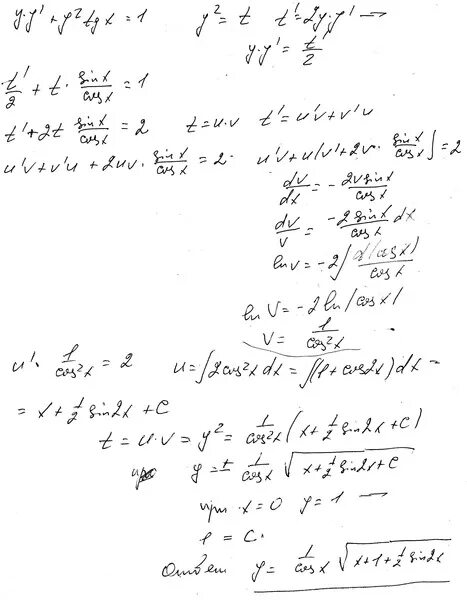 y·y' + y² tg x = 1    y² = t    t' = 2y·y' —
y·y' = t'/2
t'/2 + t · sin x/cos x = 1
t' + 2t sin x/cos x = 2    t = u·v    t' = u'v + v'u
u'v + v'u + 2uv · sin x/cos x = 2·    u'v + u(v' + 2v · sin x/cos x) = 2
dv/dx = - 2v sin x/cos x
dv/v = -2 sin x/cos x dx
ln v = -2 ∫ d(cos x)/cos x
ln v = -2 ln |cos x|
v = 1/cos² x
u' · 1/cos² x = 2    u = ∫ 2cos² x dx = ∫ (1 + cos 2x) dx =
= x + 1/2 sin 2x + C
t = u·v = y² = 1/cos² x (x + 1/2 sin 2x + C)
y = ± 1/cos x √(x + 1/2 sin 2x + C)
при x = 0 y = 1 —
1 = C.
Ответ y = 1/cos x √(x + 1 + 1/2 sin 2x)